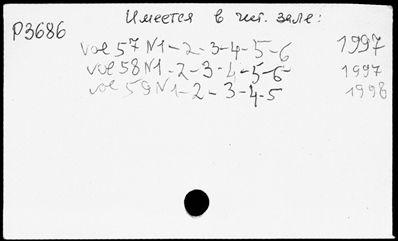 Имеется в чит. зале:
P3686
vol 57 N1-2-3-4-5-6 1997
vol 58 N1-2-3-4-5-6 1997
vol 59 N1-2-3-4-5 1998